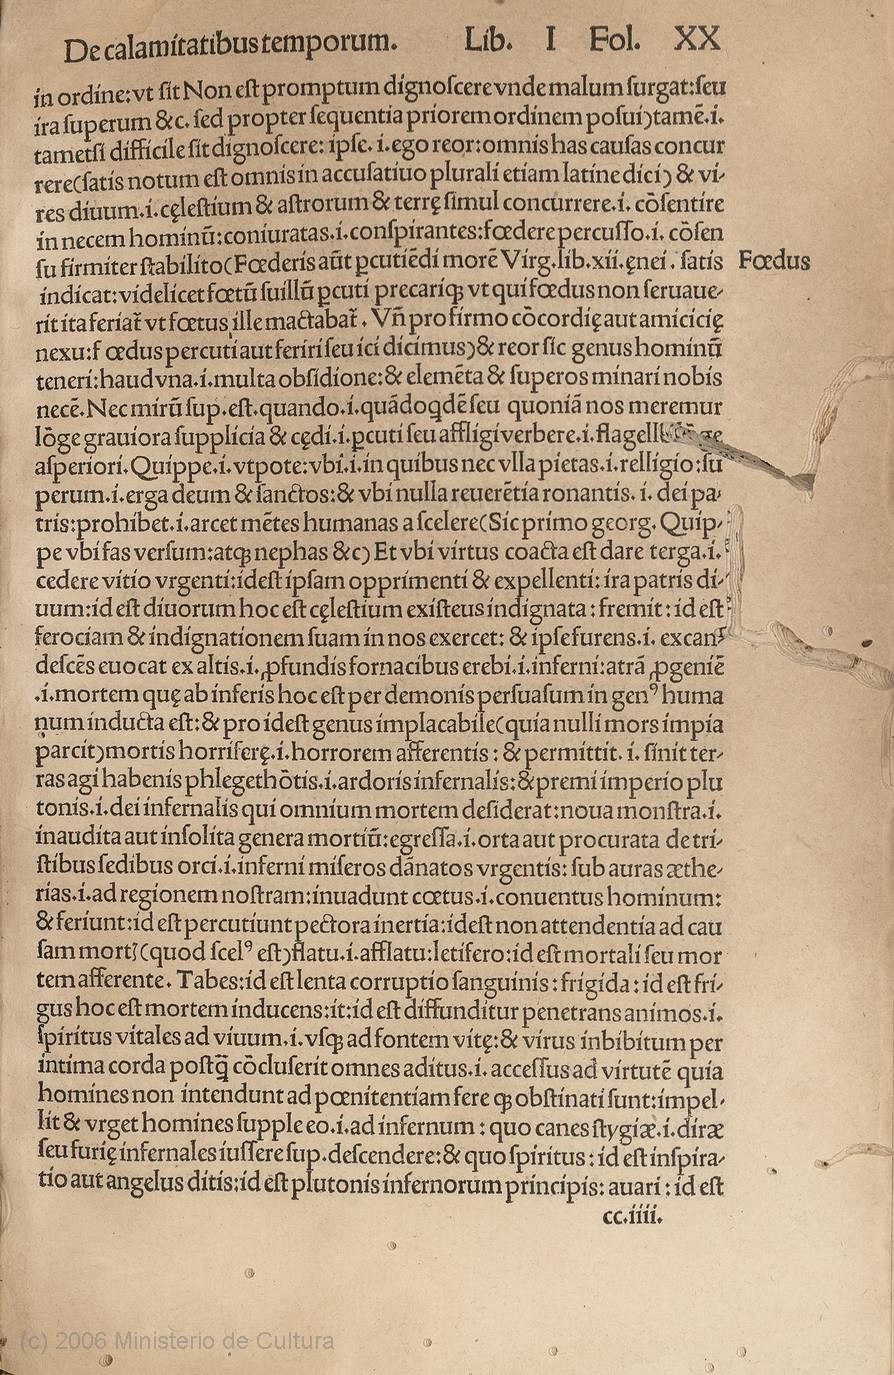 De calamitatibus temporum. Lib. I Fol. XX
in ordine: vt sit Non est promptum dignoscere vnde malum surgat: seu
ira superum &c. sed propter sequentia priorem ordinem posui) tamē .i.
tametsi difficile sit dignoscere: ipse .i. ego reor: omnis has causas concur
rere (satis notum est omnis in accusatiuo plurali etiam latine dici) & vi-
res diuum .i. cęlestium & astrorum & terrę simul concurrere .i. cōsentire
in necem hominū: coniuratas .i. conspirantes: fœdere percusso .i. cōsen
su firmiter stabilito (Fœderis aūt ꝑcutiēdi morē Virg. lib. xii. ęnei. satis
Fœdus
indicat: videlicet fœtū suillū ꝑcuti precariqꝫ vt qui fœdus non seruaue-
rit ita feriat᷑ vt fœtus ille mactabat᷑. Vn̄ pro firmo cōcordię aut amicicię
nexu: fœdus percuti aut feriri seu ici dicimus) & reor sic genus hominū
teneri: haud vna .i. multa obsidione: & elemēta & superos minari nobis
necē. Nec mirū sup. est. quando .i. quādoqdē seu quoniā nos meremur
lōge grauiora supplicia & cędi .i. ꝑcuti seu affligi verbere .i. flagell
asperiori. Quippe .i. vtpote: vbi .i. in quibus nec vlla pietas .i. relligio: su
perum .i. erga deum & sanctos: & vbi nulla reuerētia ronantis .i. dei pa-
tris: prohibet .i. arcet mētes humanas a scelere (Sic primo georg. Quip-
pe vbi fas versum: atqꝫ nephas &c) Et vbi virtus coacta est dare terga .i.
cedere vitio vrgenti: idest ipsam opprimenti & expellenti: ira patris di-
uum: id est diuorum hoc est cęlestium existeus indignata: fremit: id est
ferociam & indignationem suam in nos exercet: & ipse furens .i. excan-
descēs euocat ex altis .i. ꝓfundis fornacibus erebi .i. inferni: atrā ꝓgeniē
.i. mortem quę ab inferis hoc est per demonis persuasum in genꝰ huma
num inducta est: & pro idest genus implacabile (quia nulli mors impia
parcit) mortis horriferę .i. horrorem afferentis: & permittit .i. sinit ter-
ras agi habenis phlegethōtis .i. ardoris infernalis: & premi imperio plu
tonis .i. dei infernalis qui omnium mortem desiderat: noua monstra .i.
inaudita aut insolita genera mortiū: egressa .i. orta aut procurata de tri-
stibus sedibus orci .i. inferni miseros dānatos vrgentis: sub auras æthe-
rias .i. ad regionem nostram: inuadunt cœtus .i. conuentus hominum:
& feriunt: id est percutiunt pectora inertia: idest non attendentia ad cau
sam mortꝭ (quod scelꝰ est) flatu .i. afflatu: letifero: id est mortali seu mor
tem afferente. Tabes: id est lenta corruptio sanguinis: frigida: id est fri-
gus hoc est mortem inducens: it: id est diffunditur penetrans animos .i.
spiritus vitales ad viuum .i. vsqꝫ ad fontem vitę: & virus inbibitum per
intima corda postq̄ cōcluserit omnes aditus .i. accessus ad virtutē quia
homines non intendunt ad pœnitentiam fere qꝫ obstinati sunt: impel-
lit & vrget homines supple eo .i. ad infernum: quo canes stygiæ .i. diræ
seu furię infernales iussere sup. descendere: & quo spiritus: id est inspira-
tio aut angelus ditis: id est plutonis infernorum principis: auari: id est
cc.iiii.
(c) 2006 Ministerio de Cultura